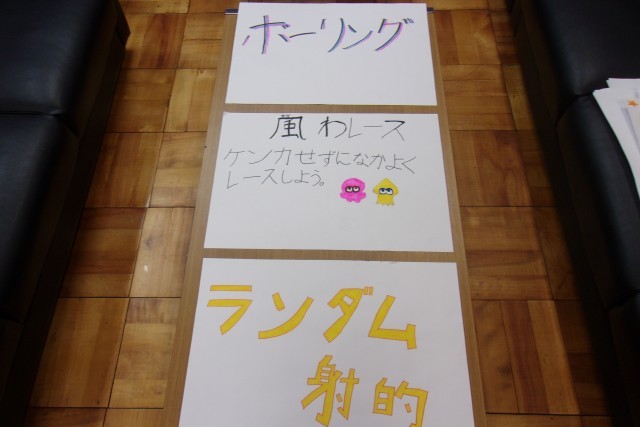 ボーリング
風わレース
ケンカせずになかよく
レースしよう。
ランダム
射的